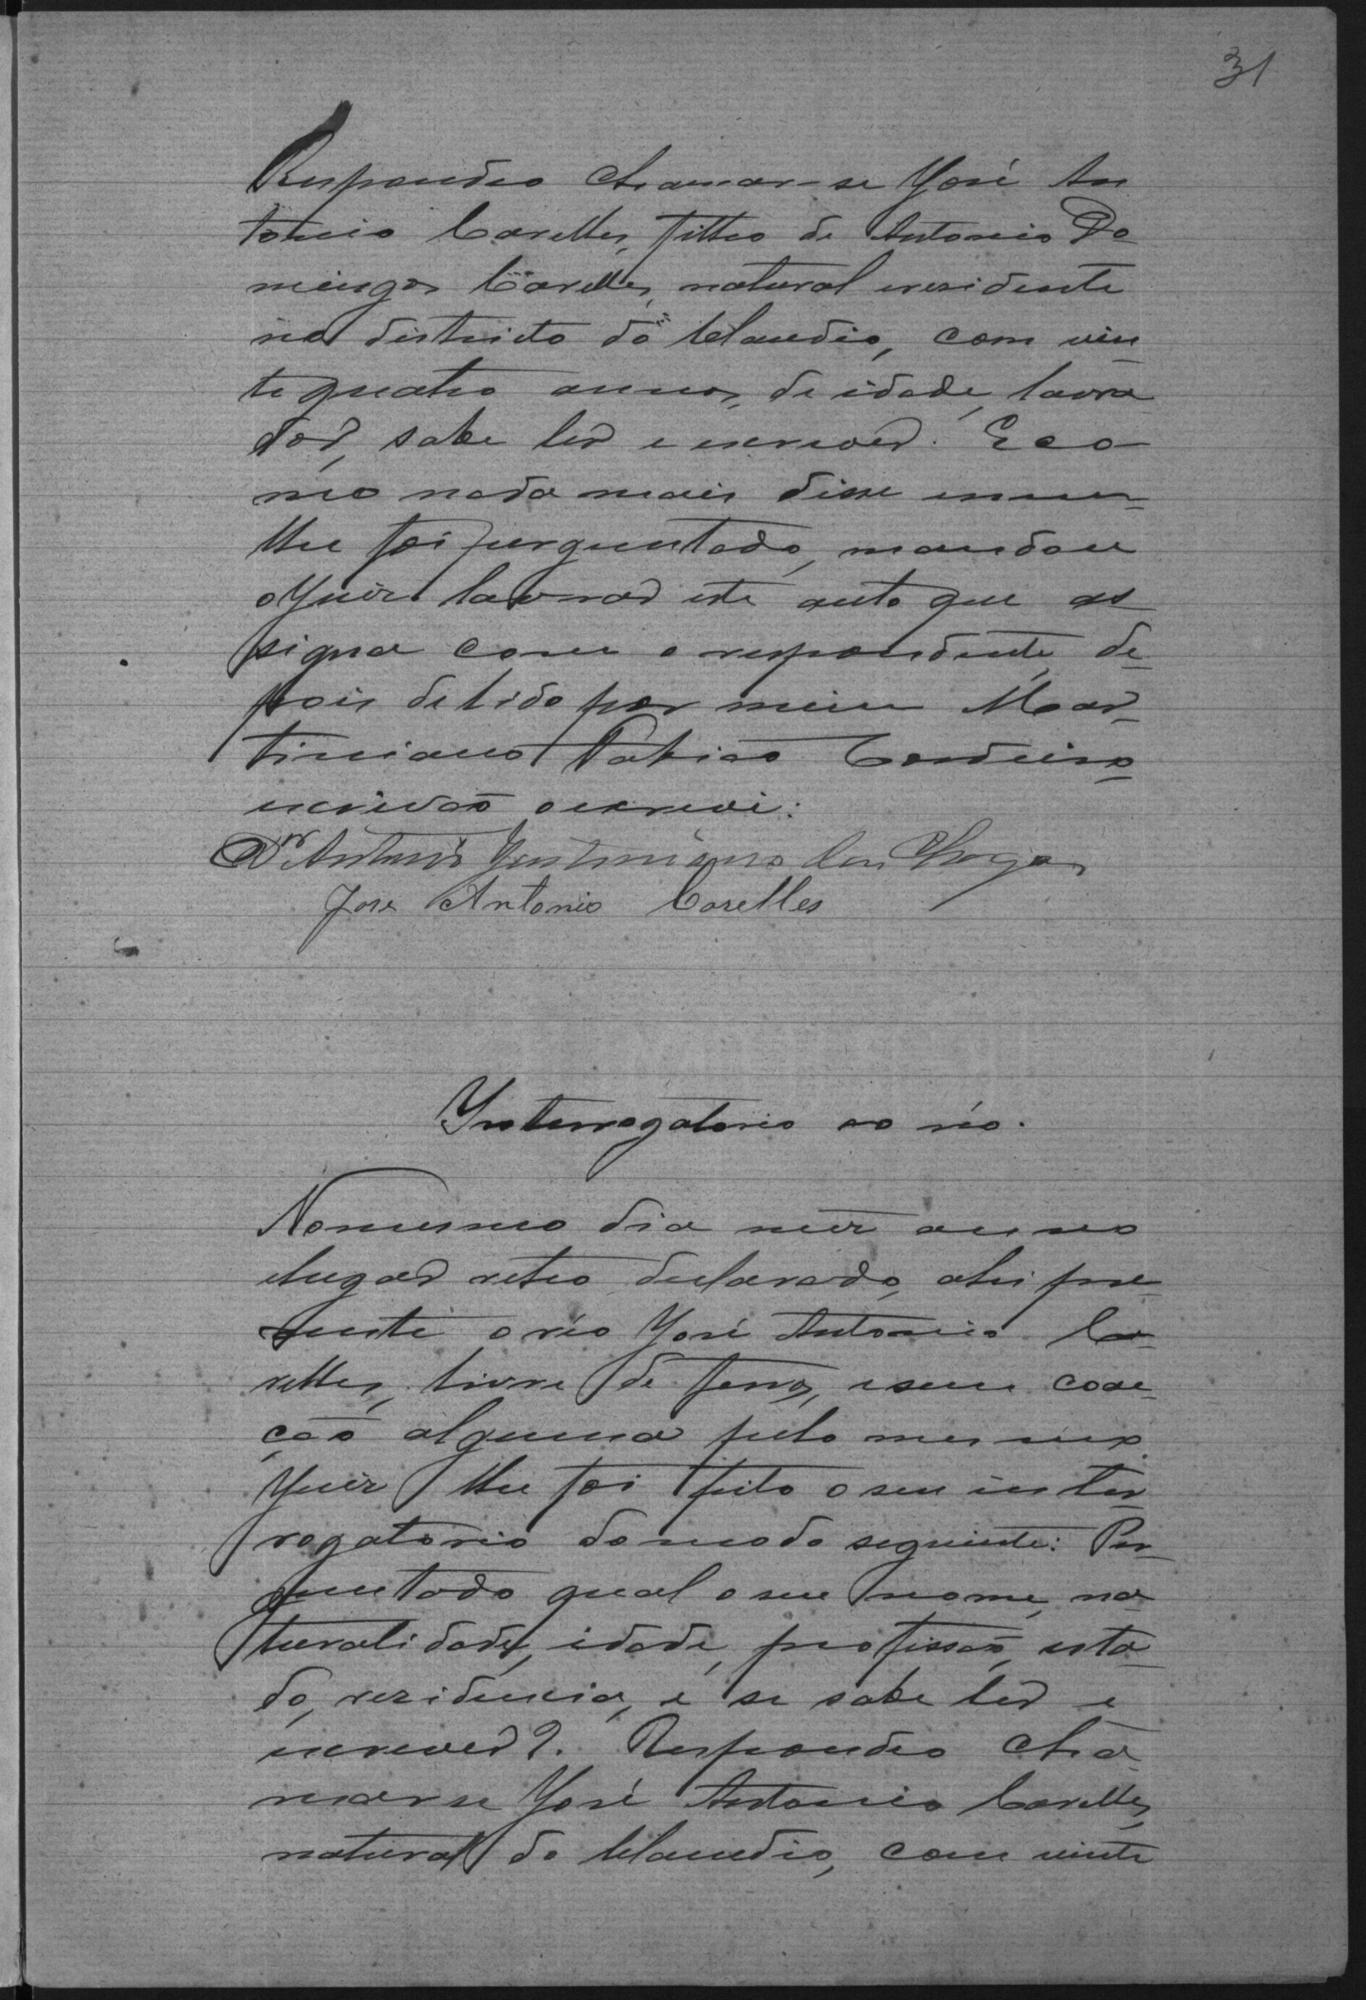 31
Respondeo chamar-se José An
tonio Carelles, filho de Antonio Do
mingos Carelles, natural e rezidente
no districto do Claudio, com vin
te quatro annos, de idade, lavra
dor, sabe ler e escrever. E co
mo nada mais disse nem
lhe foi perguntado, mandou
o Juiz lavrar este auto que as
signa com o respondente, de
pois de lido por mim Mar-
tiniano Fabiao Cordeiro
escrivão o escrevi:
Dr Antonio Justiniano das Chagas
Jose Antonio Carelles
Interrogatorio ao réo.
No mesmo dia mez anno
e lugar retro declarado, ahi pre
zente o réo José Antonio Ca-
relles, livre de ferros, e sem coac-
ção alguma pelo mesmo
Juiz lhe foi feito o seu inter
rogatorio do modo seguinte: Per
guntado qual o seu nome, na
turalidade, idade, profissão, esta
do, rezidencia, e se sabe ler e
escrever?. Respondeo cha
mar se José Antonio Carelles,
natural do Claudio, com vinte